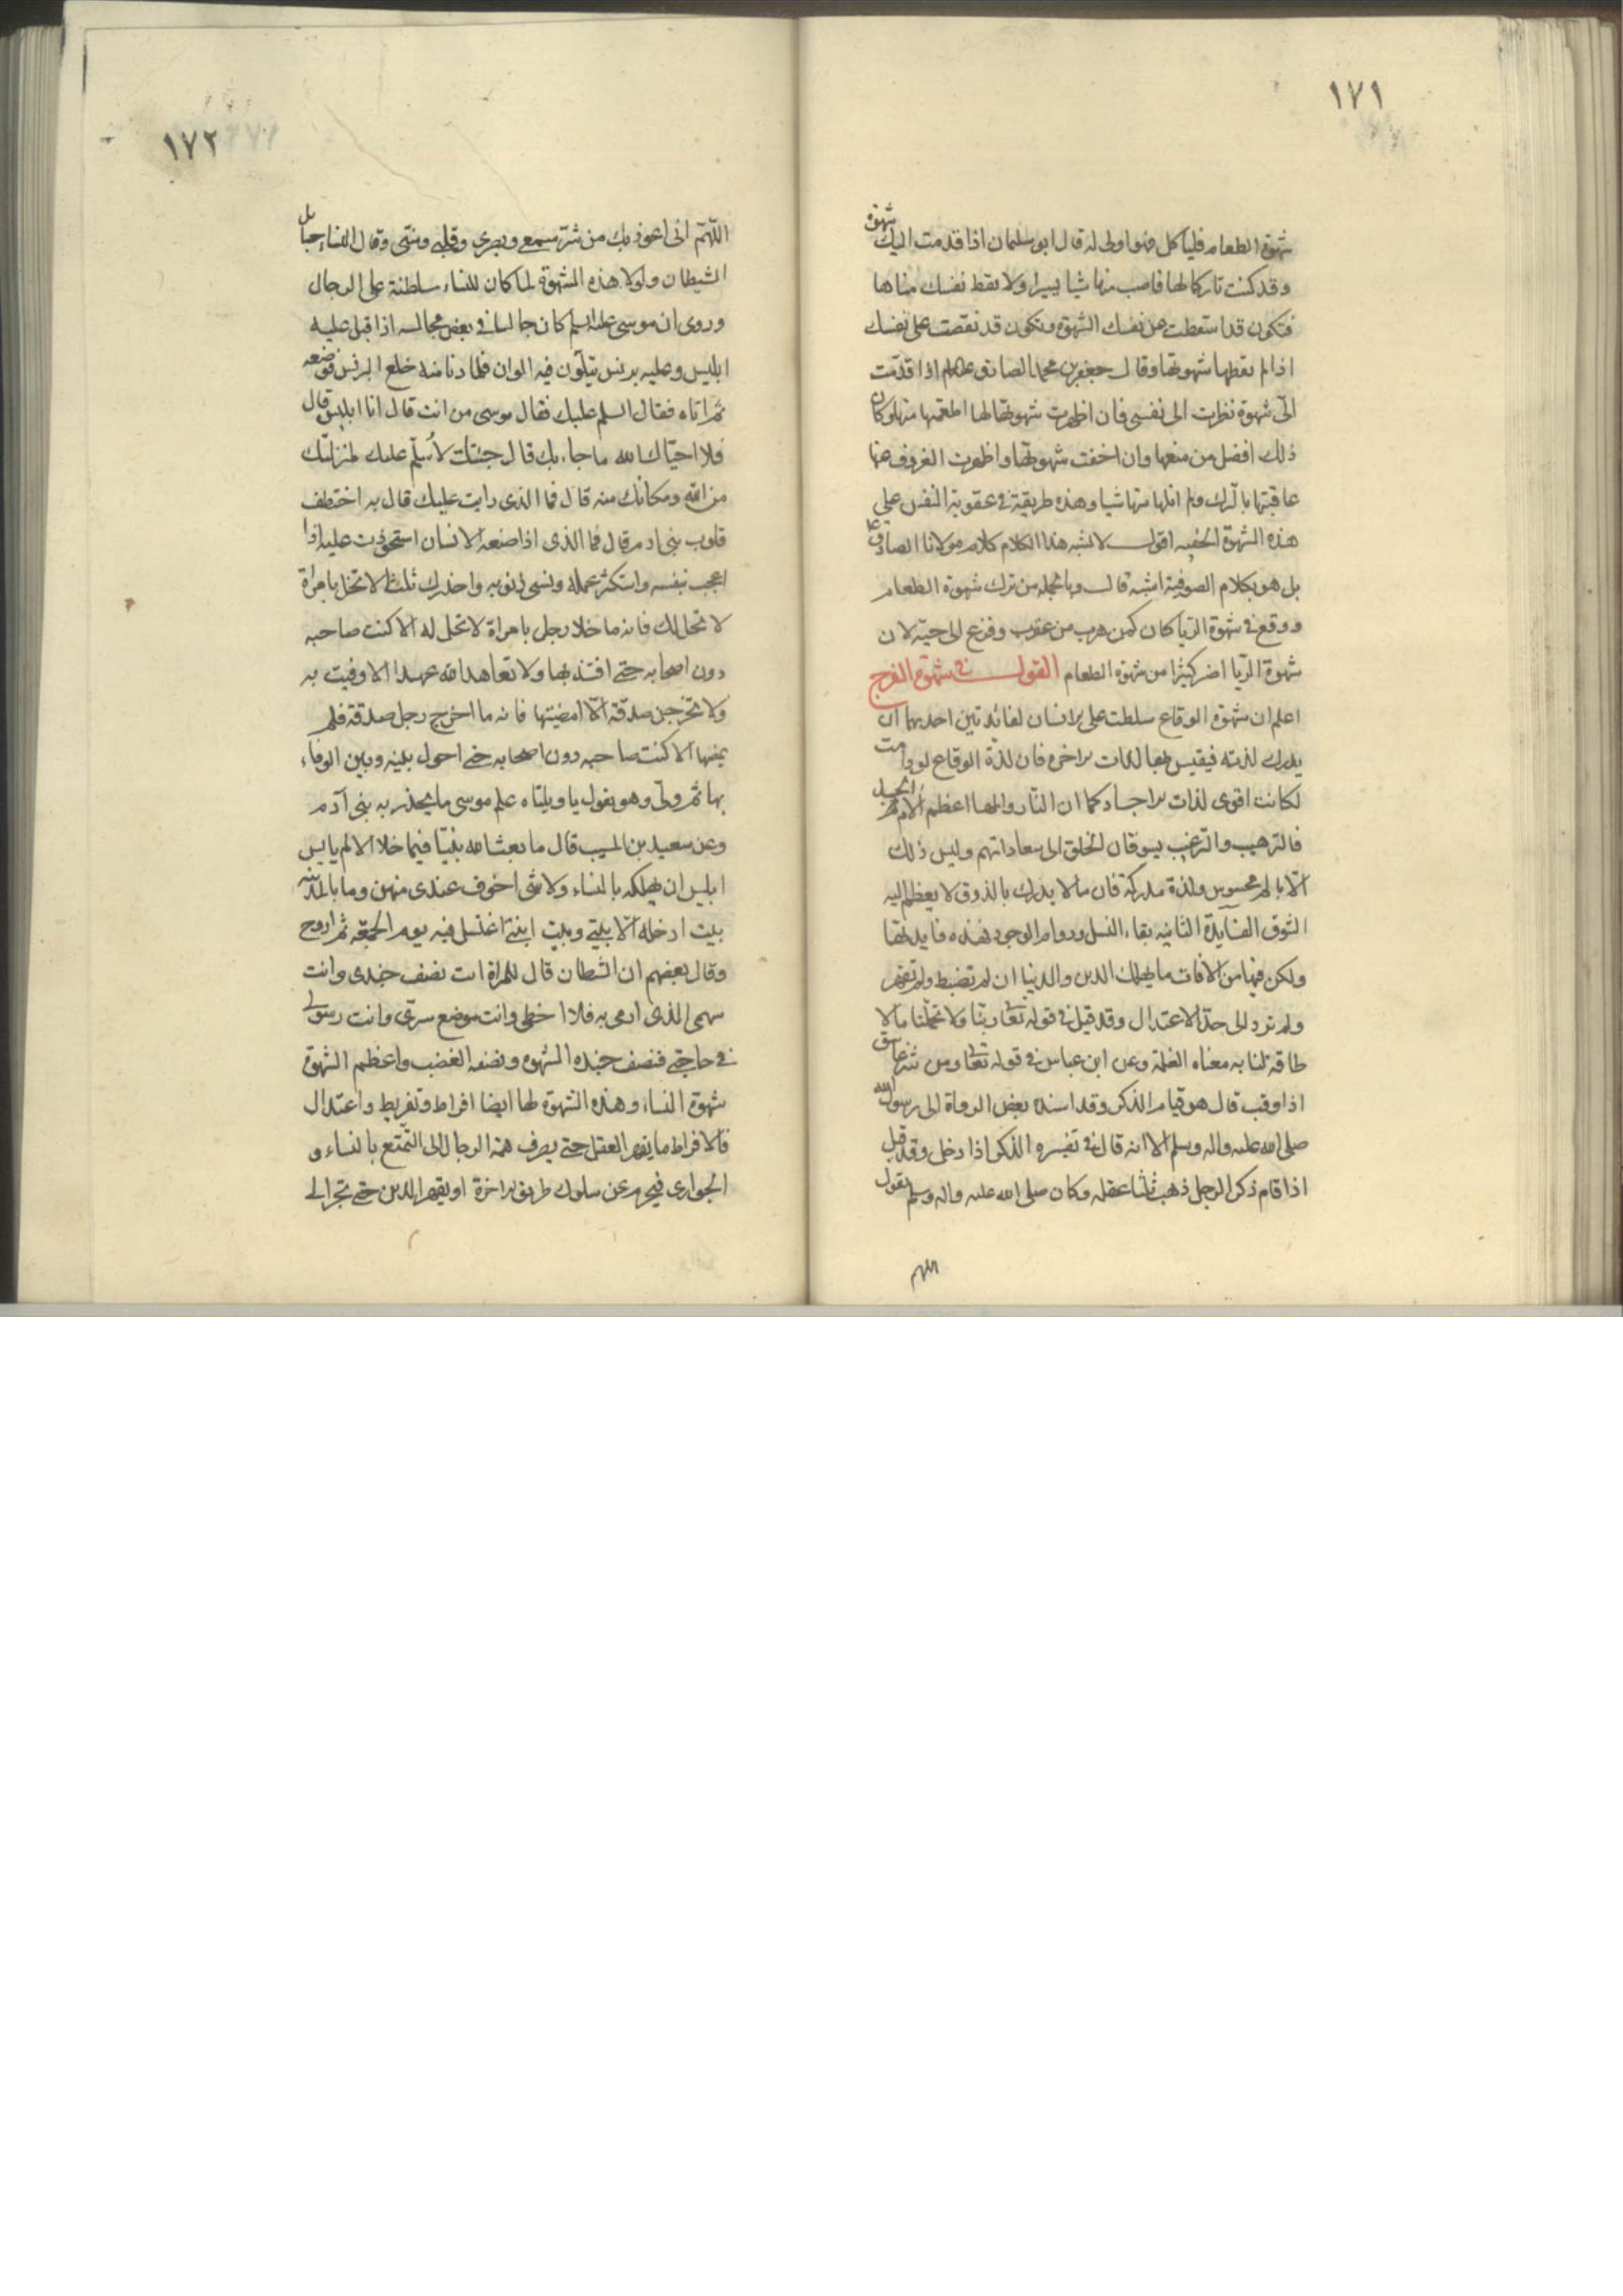 ١٧١
شهوة الطعام فلياكل فهو اولى له قال ابو سليمان اذا قدمت اليك شهوة
وقد كنت تاركا لها فاصب منها شيا يسيرا ولا تعط نفسك مناها
فتكون قد اسقطت عن نفسك الشهوة وتكون قد نغصت على نفسك
اذا لم تعطها شهوتها وقال جعفر بن محمد الصادق اذا قدمت
الىّ شهوة نظرت الى نفسى فان اظهرت شهوتها لها اطعمتها منها وكان
ذلك افضل من منعها وان اخفت شهوتها واظهرت العزوف عنها
عاقبتها بالترك ولم انلها منها شيا وهذه طريقة فى عقوبة النفس على
هذه الشهوة الخفيه اقول لا يشبه هذا الكلام كلام مولانا الصادق ع
بل هو بكلام الصوفية اشبه قال وبالجمله من ترك شهوة الطعام
ووقع فى شهوة الريا كان كمن هرب من عقرب وفزع الى حية لان
شهوة الريا اضر كثيرا من شهوة الطعام القول فى شهوة الفرج
اعلم ان شهوة الوقاع سلطت على الانسان لفائدتين احديهما ان
يدرك لذته فيقيس بها لذات الاخرة فان لذة الوقاع لو دامت
لكانت اقوى لذات الاجساد كما ان النار والمها اعظم الام الجسد
فالترهيب والترغيب يسوقان الخلق الى سعاداتهم وليس ذلك
الا بالم محسوس ولذة مدركة فان ما لا يدرك بالذوق لا يعظم اليه
الشوق الفايدة الثانيه بقاء النسل ودوام الوجود فهذه فايدتها
ولكن فيها من الافات ما يهلك الدين والدنيا ان لم تضبط ولم تقهر
ولم ترد الى حد الاعتدال وقد قيل فى قوله تعا ربنا ولا تحملنا ما لا
طاقة لنا به معناه الغلمة وعن ابن عباس فى قوله تعا ومن شر غاسق
اذا وقب قال هو قيام الذكر وقد اسنده بعض الرواة الى رسول الله
صلى الله عليه واله وسلم الا انه قال فى تفسيره الذكر اذا دخل وقد قيل
اذا قام ذكر الرجل ذهب ثلثا عقله وكان صلى الله عليه واله وسلم يقول
اللهم
١٧٢
اللهم انى اعوذ بك من شر سمعى وبصرى وقلبى ومنيى وقال النساء حبايل
الشيطان ولولا هذه الشهوة لما كان للنساء سلطنة على الرجال
وروى ان موسى عليه السلم كان جالسا فى بعض مجالسه اذا قبل عليه
ابليس وعليه برنس يتلون فيه الوان فلما دنا منه خلع البرنس فوضعه
ثم اتاه فقال السلم عليك فقال موسى من انت قال انا ابليس قال
فلا احياك الله ما جاء بك قال جئت لاسلم عليك لمنزلتك
من الله ومكانك منه قال فما الذى رايت عليك قال به اختطف
قلوب بنى ادم قال فما الذى اذا صنعه الانسان استحوذت عليه اذا
اعجب بنفسه واستكثر عمله ونسى ذنوبه واحذرك ثلثا لا تخل بامراة
لا تحل لك فانه ما خلا رجل بامراة لا تحل له الا كنت صاحبه
دون اصحابه حتى افتنه بها ولا تعاهد الله عهدا الا وفيت به
ولا تخرجن صدقة الا امضيتها فانه ما اخرج رجل صدقة فلم
يمضها الا كنت صاحبه دون اصحابه حتى احول بينه وبين الوفاء
بها ثم ولى وهو يقول يا ويلتاه علم موسى ما يحذر به بنى آدم
وعن سعيد بن المسيب قال ما بعث الله نبيا فيما خلا الا لم يايس
ابليس ان يهلكه بالنساء ولا شى اخوف عندى منهن وما بالمدينة
بيت ادخله الا بيتى وبيت ابنتى اغتسل فيه يوم الجمعة ثم اروح
وقال بعضهم ان الشيطان قال للمراة انت نصف جندى وانت
سهمى الذى ارمى به فلا اخطى وانت موضع سرى وانت رسولى
فى حاجتى فنصف جنده الشهوه ونصفه الغضب واعظم الشهوة
شهوة النساء وهذه الشهوة لها ايضا افراط وتفريط واعتدال
فالافراط ما يقهر العقل حتى يصرف همة الرجال الى التمتع بالنساء و
الجوارى فيحرم عن سلوك طريق الاخرة او يقهر الدين حتى تجر الى